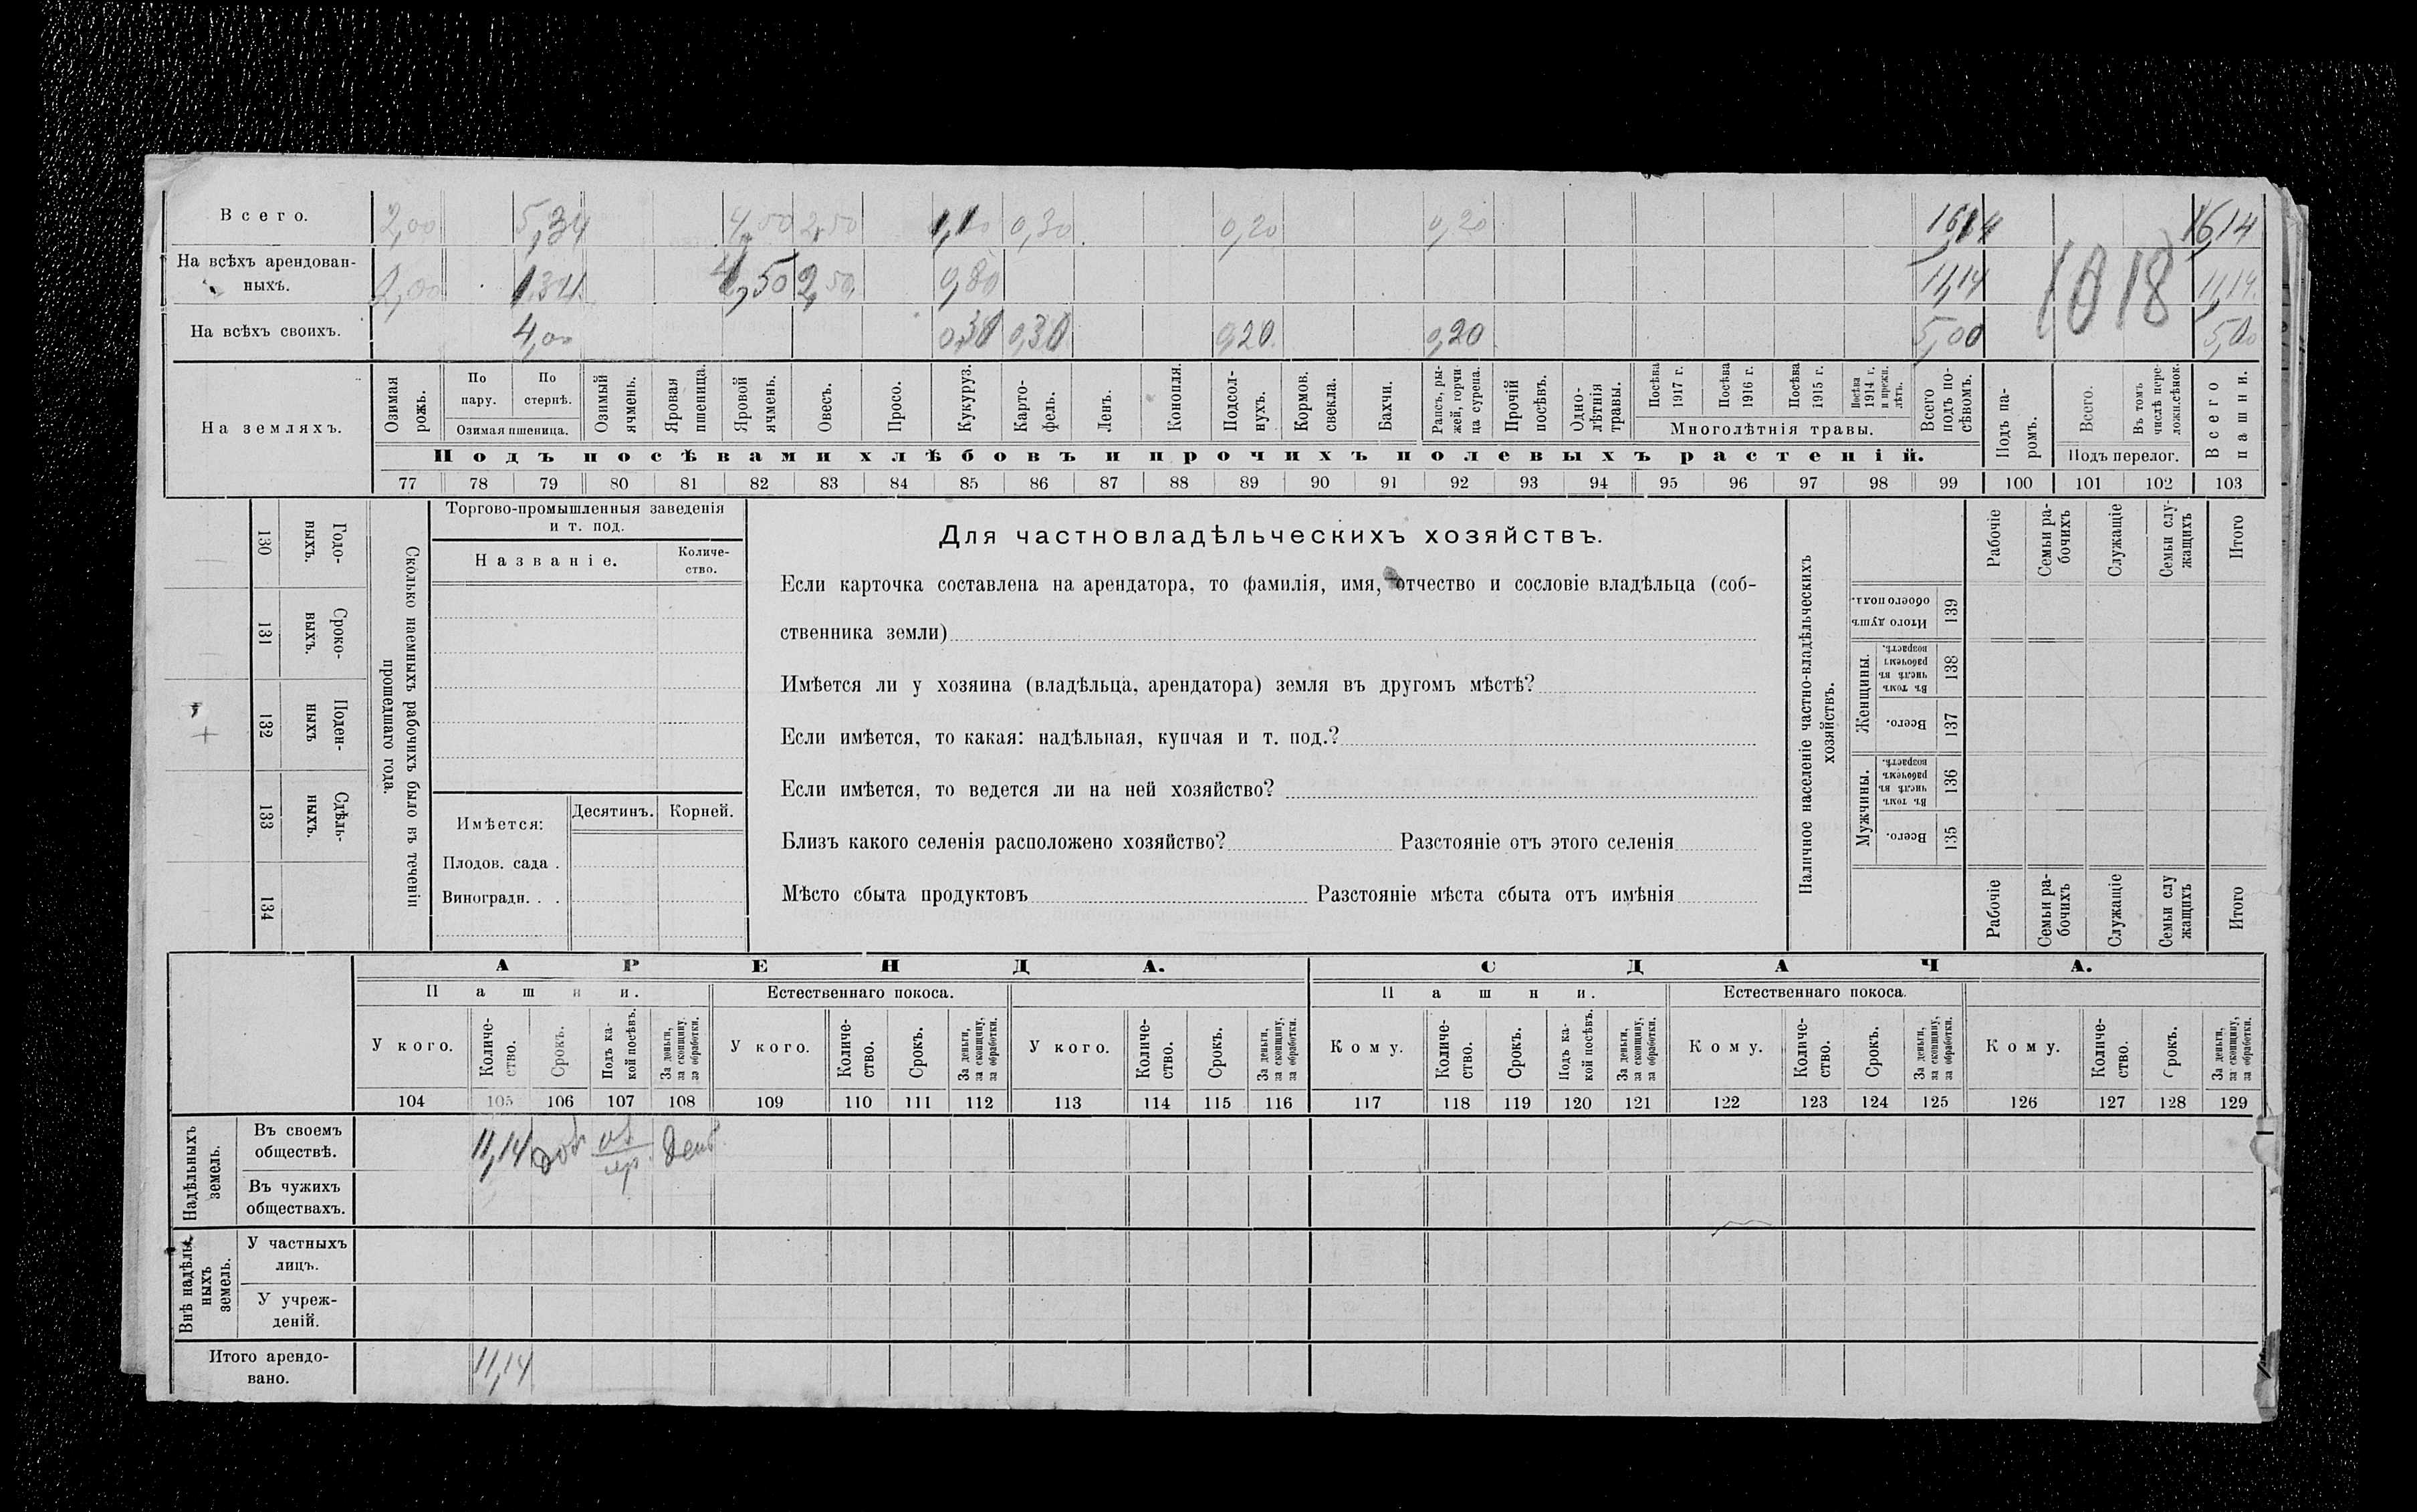 Всего. 2,00 5,34 4,50 2,50 1,10 0,30 0,20 0,20 16,14 16,14
На всѣхъ арендован- 2,00 1,34 4,50 2,50 0,80 11,14 11,14
ныхъ.
1018
На всѣхъ своихъ. 4,00 0,30 0,30 0,20 0,20 5,00 5,00
На земляхъ.
Озимая рожь.
По пару.
По стернѣ.
Озимая пшеница.
Озимый ячмень.
Яровая пшеница.
Яровой ячмень.
Овесъ.
Просо.
Кукуруз.
Карто-
фель.
Ленъ.
Конопля.
Подсол-
нухъ.
Кормов.
свекла.
Бахчи.
Рапсъ, ры-
жей, горчи-
ца сурепа.
Прочій
посѣвъ.
Одно-
лѣтнія
травы.
Посѣва 1917 г.
Посѣва 1916 г.
Посѣва 1915 г.
Посѣва 1914 г. и прежн. лѣтъ.
Многолѣтнія травы.
Всего подъ по-
сѣвомъ.
Подъ па-
ромъ.
Всего.
Въ томъ числѣ пере-
ложн. сѣнок.
Подъ перелог.
Всего пашни.
Подъ посѣвами хлѣбовъ и прочихъ полевыхъ растеній.
77 78 79 80 81 82 83 84 85 86 87 88 89 90 91 92 93 94 95 96 97 98 99 100 101 102 103
130 Годо-
ныхъ.
131 Сроко-
выхъ.
132 Поден-
ныхъ
133 Сдѣль-
ныхъ.
134
Сколько наемныхъ рабочихъ было въ теченіи
прошедшаго года.
Торгово-промышленныя заведенія
и т. под.
Названіе.
Количе-
ство.
Имѣется:
Десятинъ.
Корней.
Плодов. сада .
Виноградн. . .
Для частновладѣльческихъ хозяйствъ.
Если карточка составлена на арендатора, то фамилія, имя, отчество и сословіе владѣльца (соб-
ственника земли)
Имѣется ли у хозяина (владѣльца, арендатора) земля въ другомъ мѣстѣ?
Если имѣется, то какая: надѣльная, купчая и т. под.?
Если имѣется, то ведется ли на ней хозяйство?
Близъ какого селенія расположено хозяйство? Разстояніе отъ этого селенія
Мѣсто сбыта продуктовъ Разстояніе мѣста сбыта отъ имѣнія
Наличное населеніе частно-владѣльческихъ
хозяйствъ.
Рабочіе
Семьи ра-
бочихъ
Служащіе
Семьи слу-
жащихъ
Итого
Итого душъ обоего пола. 139
Женщины.
Въ томъ числѣ въ рабочемъ возрастѣ. 138
Всего. 137
Мужчины.
Въ томъ числѣ въ рабочемъ возрастѣ. 136
Всего. 135
Рабочіе
Семьи ра-
бочихъ
Служащіе
Семьи слу
жащихъ
Итого
АРЕНДА. СДАЧА.
Пашни. Естественнаго покоса. Пашни. Естественнаго покоса.
У кого.
Количе-
ство.
Срокъ.
Подъ ка-
кой посѣвъ.
За деньги,
за скопщину,
за обработки.
У кого.
Количе-
ство.
Срокъ.
За деньги,
за скопщину,
за обработки.
У кого.
Количе-
ство.
Срокъ.
За деньги,
за скопщину,
за обработки.
Кому.
Количе-
ство.
Срокъ.
Подъ ка-
кой посѣвъ.
За деньги,
за скопщину,
за обработки.
Кому.
Количе-
ство.
Срокъ.
За деньги,
за скопщину,
за обработки.
Кому.
Количе-
ство.
Срокъ.
За деньги,
за скопщину,
за обработки.
104 105 106 107 108 109 110 111 112 113 114 115 116 117 118 119 120 121 122 123 124 125 126 127 128 129
Надѣльныхъ
земель.
Въ своемъ
обществѣ. 11,14 ден
Въ чужихъ
обществахъ.
Внѣ надѣль-
ныхъ
земель.
У частныхъ
лицъ.
У учреж-
деній.
Итого арендо-
вано. 11,14